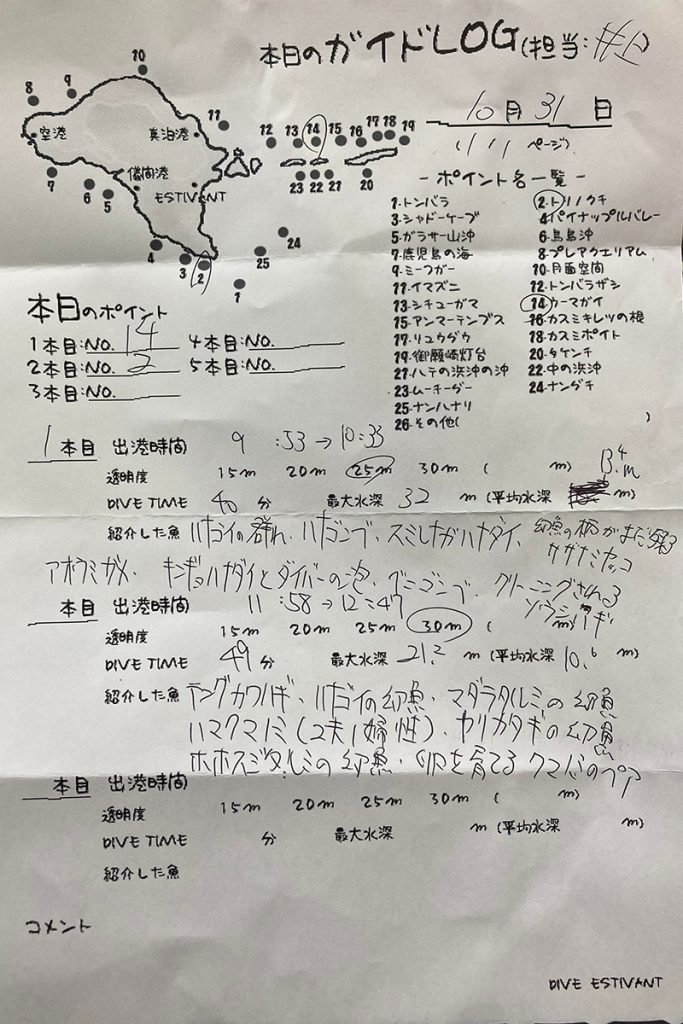 本日のガイドLOG(担当:
10月31日
(1/1ページ)
10
9
8
空港
真泊港
11
12 13 14 15 16 17 18 19
23 22 21 20
7
6
5
儀間港
ESTIVANT
4
3
2
1
25
24
- ポイント名一覧 -
1.トンバラ 2.トリノクチ
3.シャドーケーブ 4.パイナップルバレー
5.ガラサー山沖 6.鳥島沖
7.鹿児島の海 8.プレアクエリアム
9.ミーフガー 10.月面空間
11.イマズニ 12.トンバラザシ
13.シチューガマ 14.カーマガイ
15.アンマーテンブス 16.カスミキレツの根
17.リュウグウ 18.カスミポイト
19.御願崎灯台 20.タケンチ
21.ハテの浜沖の沖 22.中の浜沖
23.ムーチーグー 24.ナングチ
25.ナンハナリ
26.その他( )
本日のポイント
1本目:NO. 14 4本目:NO.
2本目:NO. 2 5本目:NO.
3本目:NO.
1本目 出港時間 9:53→10:33
透明度 15m 20m 25m 30m ( m)
DIVE TIME 40分 最大水深 32m (平均水深 13.4m)
紹介した魚 ハナゴイの群れ、ハナゴンベ、スミレナガハナダイ、幼魚の柄がまだ残る
サザナミヤッコ
アオウミガメ、キンギョハナダイとダイバーの泡、ベニゴンベ、クリーニングされる
ゾウシハギ
本目 出港時間 11:58→12:47
透明度 15m 20m 25m 30m ( m)
DIVE TIME 49分 最大水深 21.2m (平均水深 10.6m)
紹介した魚 テングカワハギ、ハナゴイの幼魚、マダラタルミの幼魚
ハマクマノミ(2夫1婦性)、ヤリカタギの幼魚
ホホスジタルミの幼魚、卵を育てるクマノミのペア
本目 出港時間
透明度 15m 20m 25m 30m ( m)
DIVE TIME 分 最大水深 m (平均水深 m)
紹介した魚
コメント
DIVE ESTIVANT